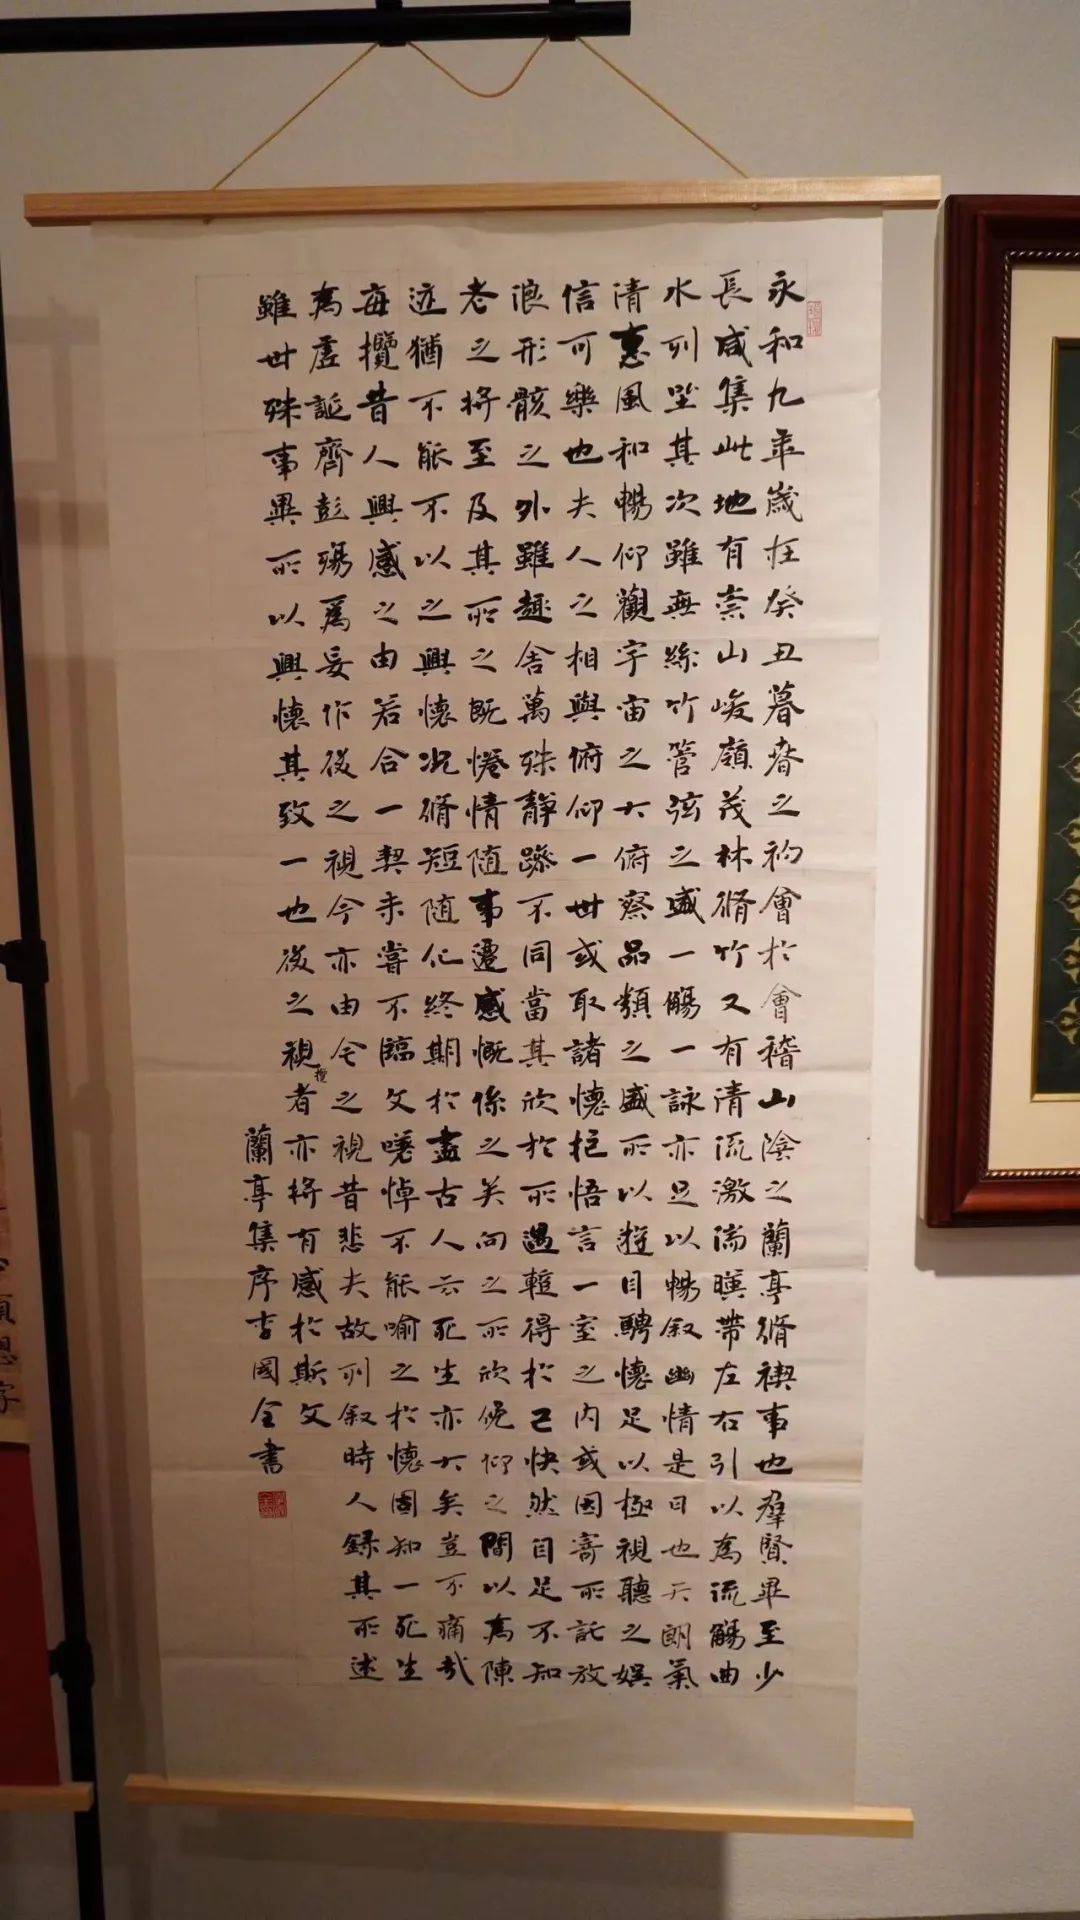 永和九年歲在癸丑暮春之初會於會稽山陰之蘭亭脩禊事也羣賢畢至少
長咸集此地有崇山峻嶺茂林脩竹又有清流激湍暎帶左右引以為流觴曲
水列坐其次雖無絲竹管弦之盛一觴一詠亦足以暢叙幽情是日也天朗氣
清惠風和暢仰觀宇宙之大俯察品類之盛所以遊目騁懷足以極視聽之娛
信可樂也夫人之相與俯仰一世或取諸懷抱悟言一室之內或因寄所託放
浪形骸之外雖趣舍萬殊靜躁不同當其欣於所遇暫得於己快然自足不知
老之將至及其所之既惓情随事遷感慨係之矣向之所欣俛仰之間以為陳
迹猶不能不以之興懷況脩短随化終期於盡古人云死生亦大矣豈不痛哉
每攬昔人興感之由若合一契未嘗不臨文嗟悼不能喻之於懷固知一死生
為虛誕齊彭殤為妄作後之視今亦由今之視昔悲夫故列叙時人録其所述
雖世殊事異所以興懷其致一也後之視者亦將有感於斯文
攬
蘭亭集序李國全書